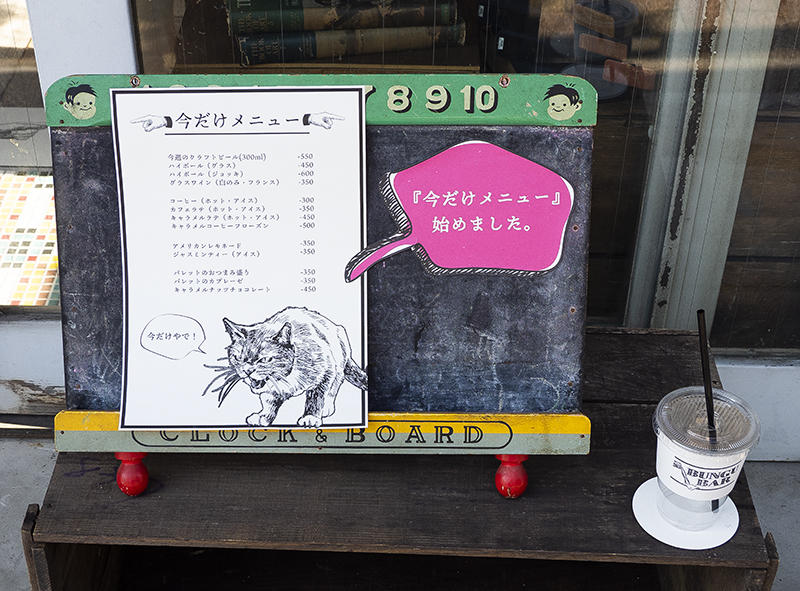 8 9 10
今だけメニュー
今週のクラフトビール(300ml) -550
ハイボール (グラス) -450
ハイボール (ジョッキ) -600
グラスワイン (白のみ・フランス) -350
コーヒー (ホット・アイス) -300
カフェラテ (ホット・アイス) -350
キャラメルラテ (ホット・アイス) -450
キャラメルコーヒーフローズン -500
アメリカンレモネード -350
ジャスミンティー (アイス) -350
パレットのおつまみ盛り -350
パレットのカプレーゼ -350
キャラメルナッツチョコレート -450
今だけやで!
『今だけメニュー』
始めました。
CLOCK & BOARD
BUNGU
BAR